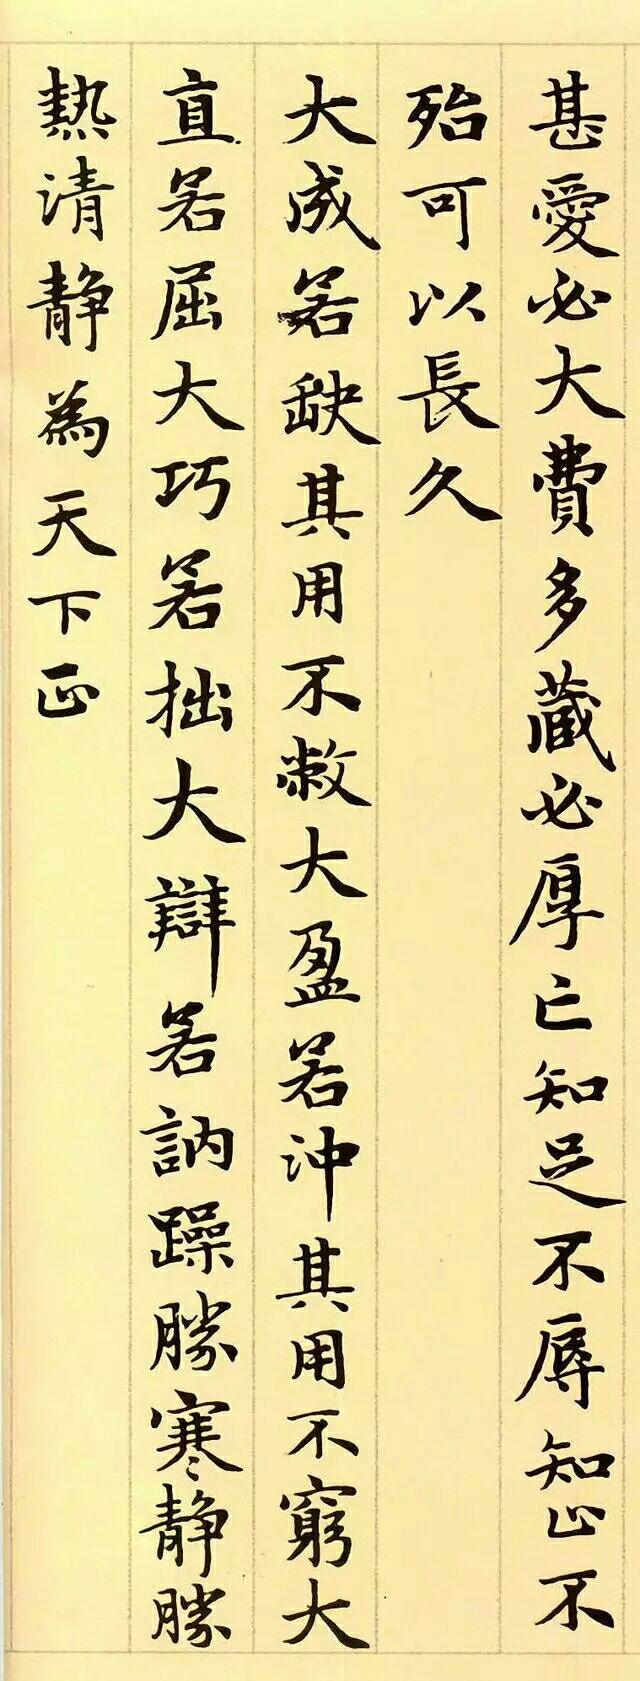 甚愛必大費多藏必厚亡知足不辱知止不
殆可以長久
大成若缺其用不敝大盈若沖其用不窮大
直若屈大巧若拙大辯若訥躁勝寒靜勝
熱清靜為天下正